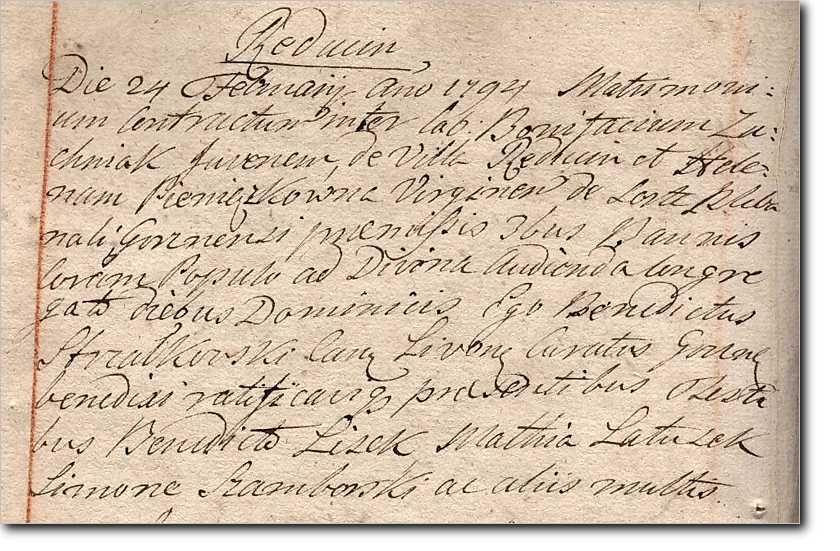 Reducin
Die 24 Februarij Ano 1794 Matrimoni=
um Contractum inter lab: Bonifacium Za=
chniak Juvenem, de Villa Reducin et Hele
nam Pieniężkowna Virginem de Sorte Pleba
nali Gorznensi præmissis 3bus Bannis
coram Populo ad Divina Audienda Congre
gato diebus Dominicis Ego Benedictus
Strzalkowski Can Livon Curatus Gorzn
benedixi ratificaviq præsentibus Testi
bus Benedicto Lisek Mathia Latuszek
Simone Szamborski ac aliis multis.